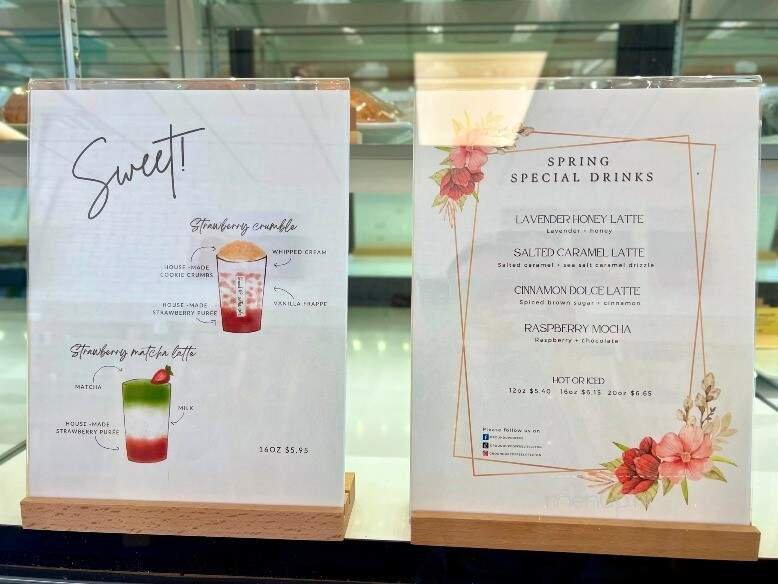 Sweet!
Strawberry crumble
WHIPPED CREAM
HOUSE-MADE
COOKIE CRUMBS
HOUSE-MADE
STRAWBERRY PURÉE
VANILLA FRAPPE
Strawberry matcha latte
MATCHA
MILK
HOUSE-MADE
STRAWBERRY PURÉE
16OZ $5.95
SPRING
SPECIAL DRINKS
LAVENDER HONEY LATTE
Lavender + honey
SALTED CARAMEL LATTE
Salted caramel + sea salt caramel drizzle
CINNAMON DOLCE LATTE
Spiced brown sugar + cinnamon
RASPBERRY MOCHA
Raspberry + chocolate
HOT OR ICED
12oz $5.40 16oz $6.15 20oz $6.65
Please follow us on